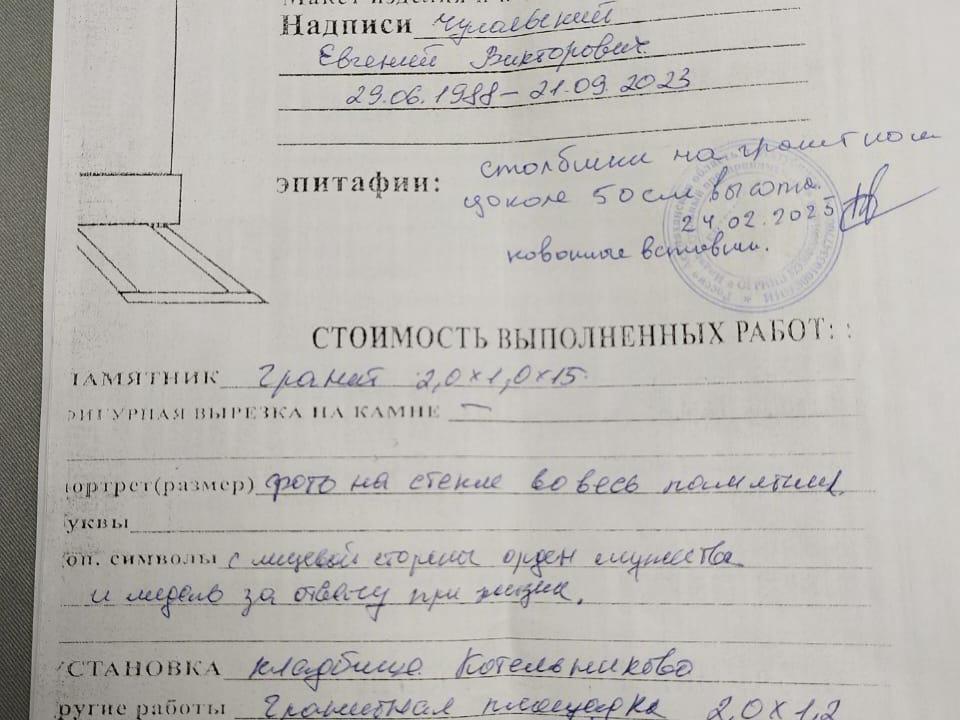 Надписи Чулаевский
Евгений Викторович
29.06.1988 – 21.09.2023
эпитафии: столбики на гранитном
цоколе 50см высота.
24.02.2025
кованные вставки.
СТОИМОСТЬ ВЫПОЛНЕННЫХ РАБОТ:
ПАМЯТНИК Гранит 2,0×1,0×15
ФИГУРНАЯ ВЫРЕЗКА НА КАМНЕ –
портрет(размер) фото на стекле во весь памятник
буквы
доп. символы с лицевой стороны орден мужества
и медаль за отвагу при жизни.
УСТАНОВКА кладбище Котельниково
другие работы Гранитная площадка 2,0×1,2